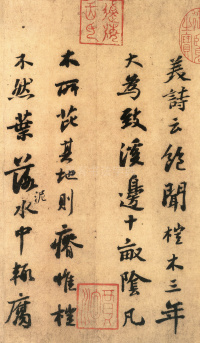 美詩云飽聞榿木三年
大為致溪邊十畝陰凡
木所芘其地則瘠惟榿
不然葉落泥水中輒腐